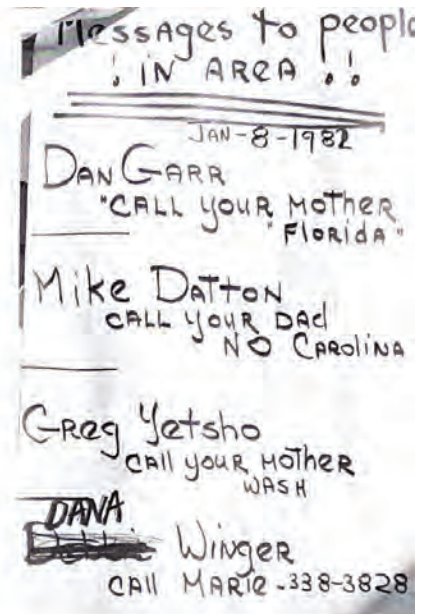 Messages to people
! IN AREA !!
JAN-8-1982
DAN GARR
"CALL YOUR MOTHER
"FLORIDA"
Mike DATTON
CALL YOUR DAd
NO CAROLINA
GReg Yetsho
CAll YOUR MOTHER
WASH
DANA
Winger
CAll MARIE-338-3828